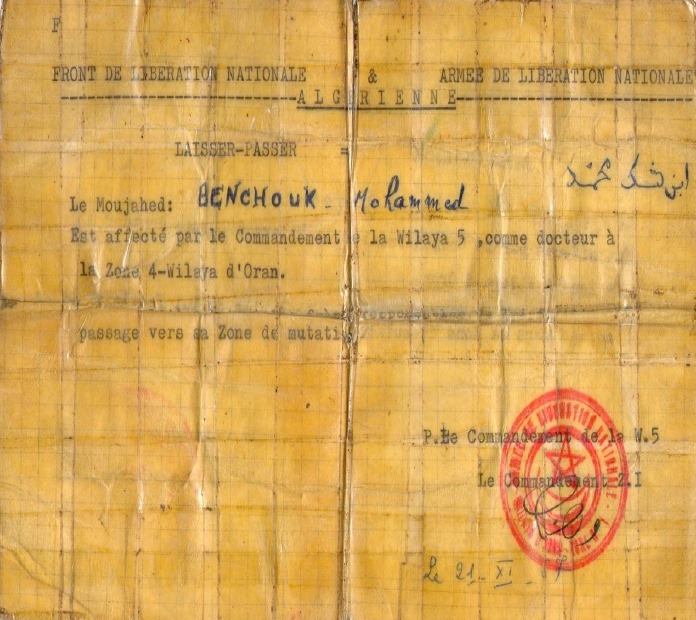 F
FRONT DE LIBERATION NATIONALE & ARMEE DE LIBERATION NATIONALE
ALGERIENNE
LAISSER-PASSER =
Le Moujahed: BENCHOUK - Mohammed
Est affecté par le Commandement de la Wilaya 5 ,comme docteur à
la Zone 4-Wilaya d'Oran.
passage vers sa Zone de
P.Le Commandement de la W.5
Le Commandement Z.I
Le 21_ XI_